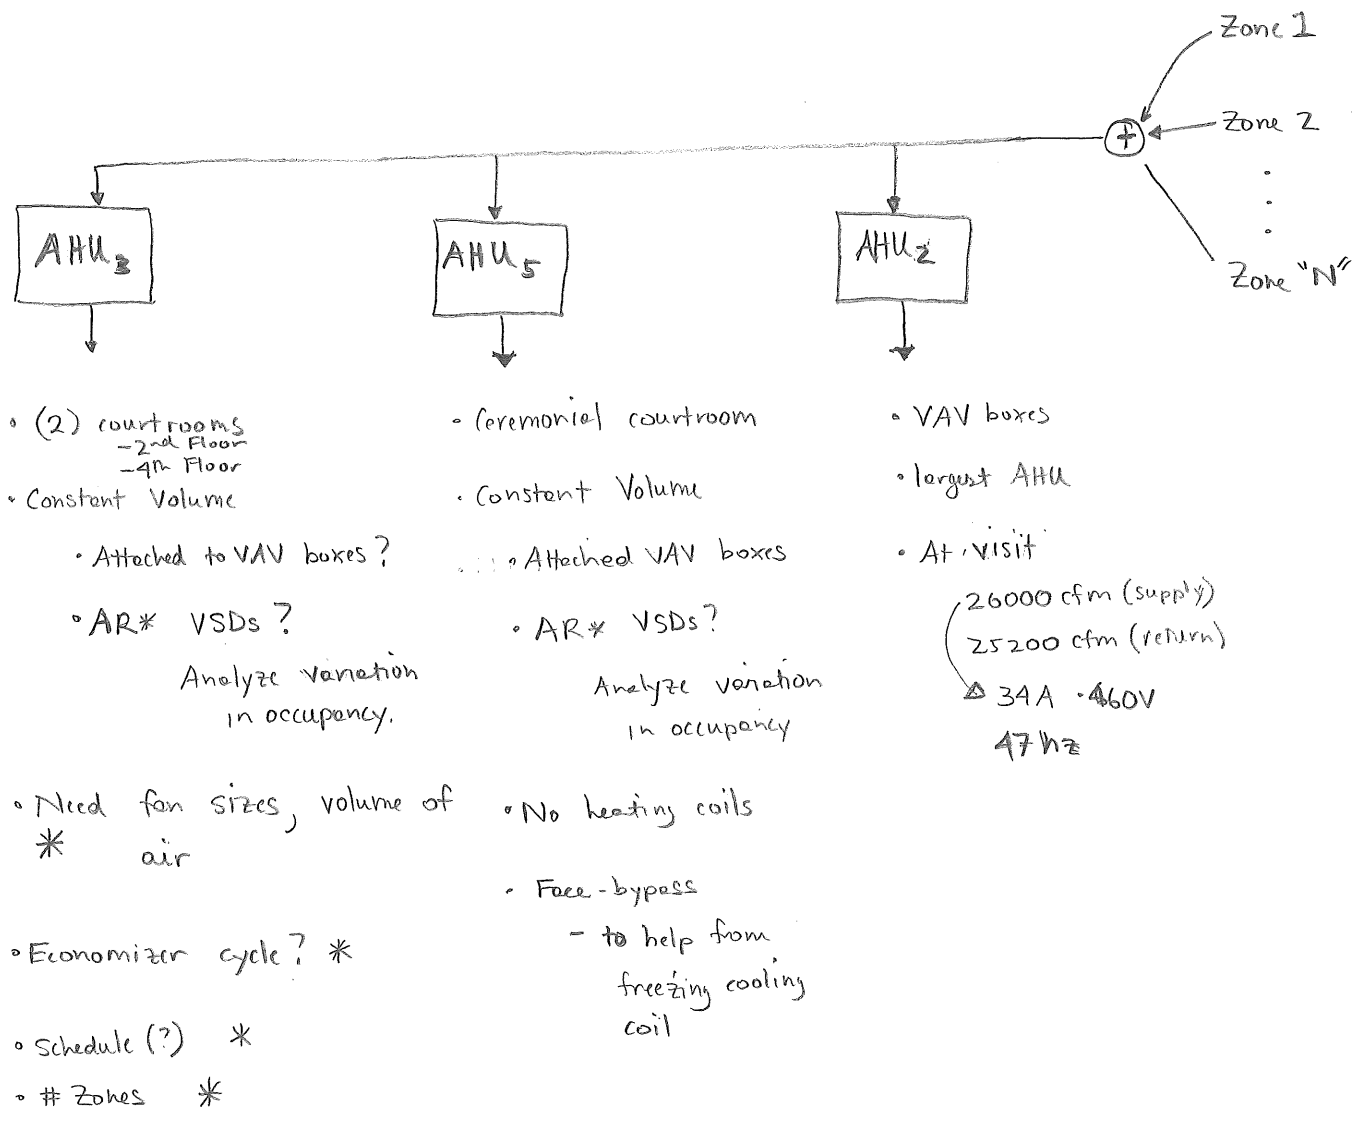 Zone 1
Zone 2
Zone "N"
+
AHU3
AHU5
AHU2
• (2) courtrooms
- 2nd Floor
- 4th Floor
• Constant Volume
• Attached to VAV boxes?
• AR* VSDs?
Analyze variation
in occupancy.
• Need fan sizes, volume of
* air
• Economizer cycle? *
• Schedule (?) *
• # Zones *
• Ceremonial courtroom
• Constant Volume
• Attached VAV boxes
• AR* VSDs?
Analyze variation
in occupancy
• No heating coils
• Face-bypass
- to help from
freezing cooling
coil
• VAV boxes
• largest AHU
• At visit
26000 cfm (supply)
25200 cfm (return)
34A · 460V
47 hz